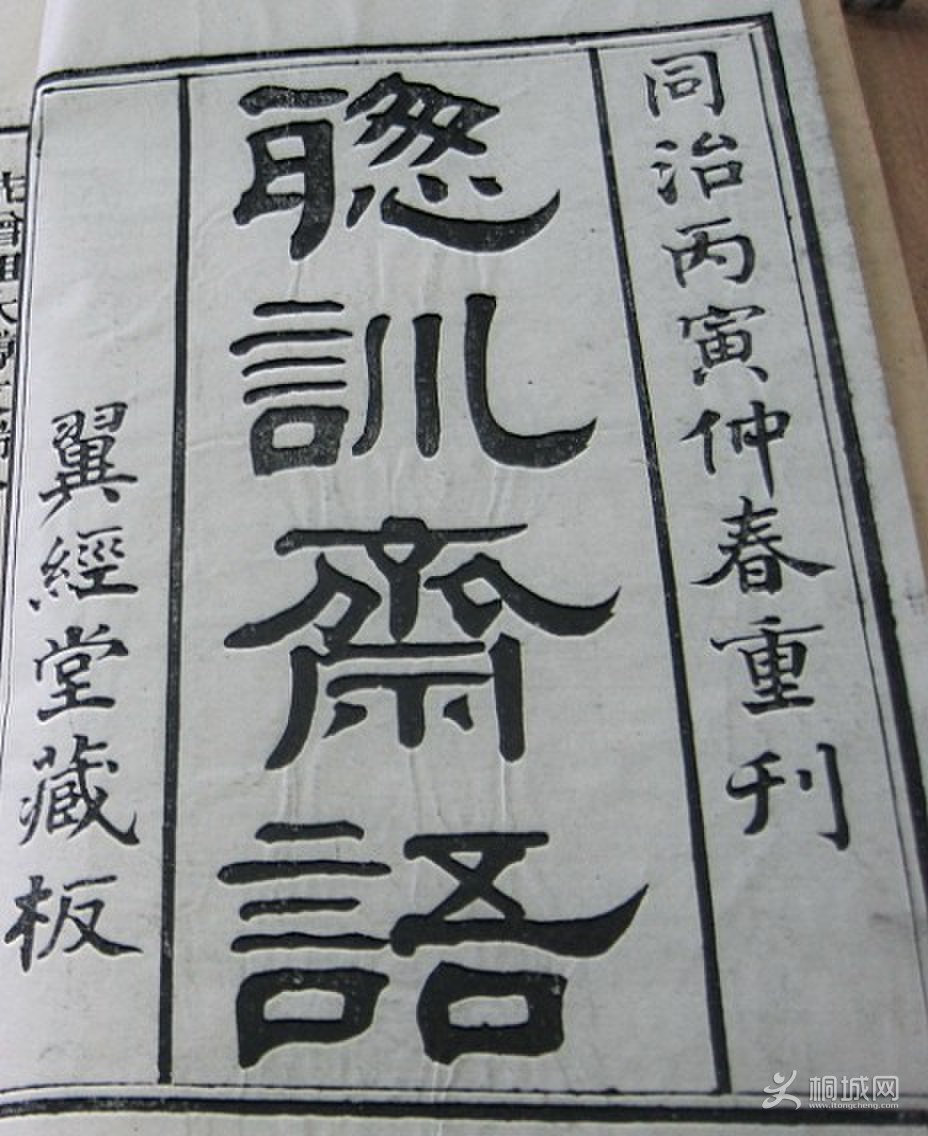 同治丙寅仲春重刊
聰訓齋語
翼經堂藏板
桐城网
www.itongcheng.com